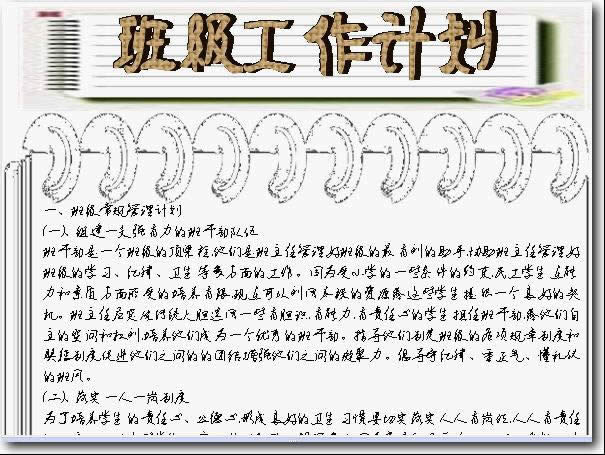 班级工作计划
一、班级常规管理计划
(一)、组建一支强有力的班干部队伍
班干部是一个班级的顶梁柱,他们是班主任管理好班级的最有利的助手,协助班主任管理好
班级的学习、纪律、卫生等多方面的工作。因为受小学的一些条件的约束,民工学生在能
力和素质方面所受的培养有限,现在可以利用本校的资源给这些学生提供一个良好的契
机。班主任启究选传统大胆选用一些有胆识,有能力,有责任心的学生担任班干部,给他们自
主的空间和权利,培养他们成为一个优秀的班干部。指导他们制定班级的各项规章制度和
职位制度,促进他们之间的的团结,增强他们之间的凝聚力。倡导守纪律、重正气、懂礼仪
的班风。
(二)、落实一人一岗制度
为了培养学生的责任心、公德心,形成良好的卫生习惯,要切实落实人人有岗位,人人有责任